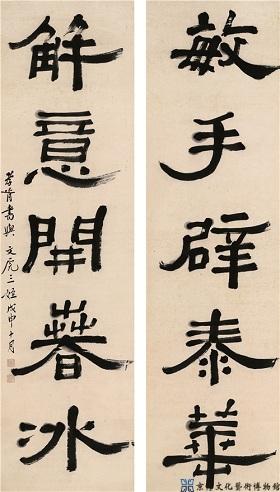 敏手辟泰華
解意開春冰
孝胥書與 文虎三姪 戊申十月
文化藝術博物館